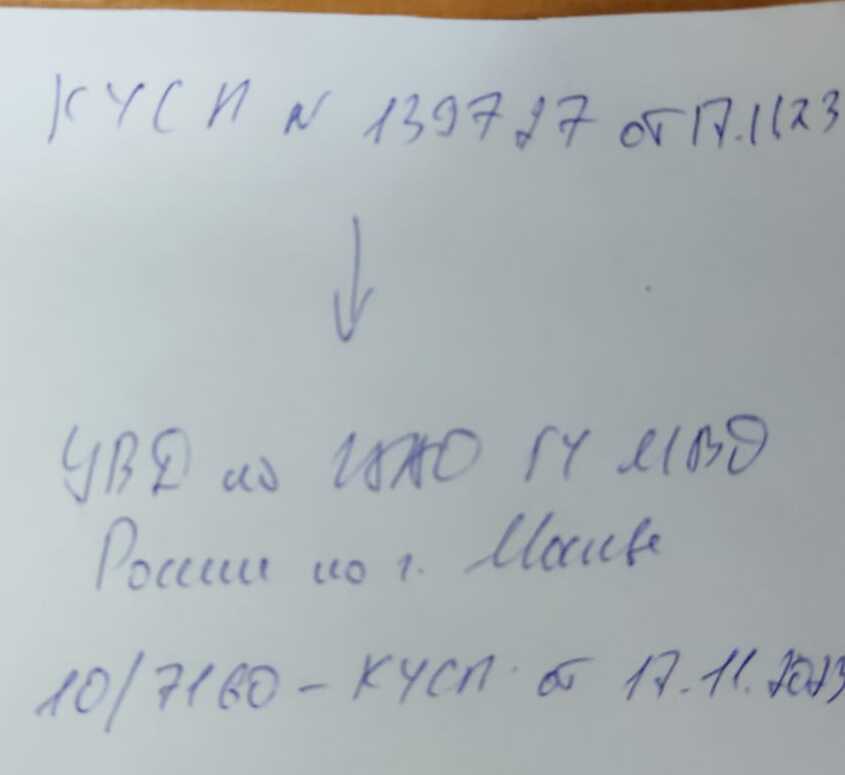 КУСП N 139727 от 17.1123
УВД по ГУ МВД
России по г. Москве
10/7160 - КУСП от 17.11.2023